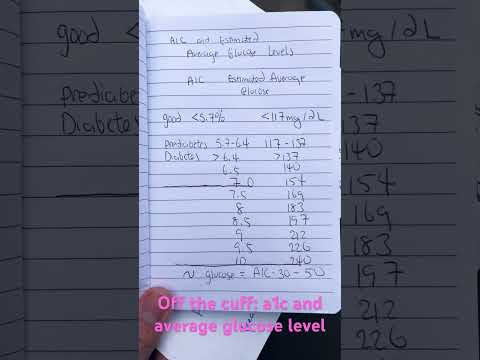 A1C and Estimated
Average Glucose Levels
A1C Estimated Average
Glucose
good <5.7% <117mg/dL
Prediabetes 5.7-6.4 117-137
Diabetes >6.4 >137
6.5 140
7.0 154
7.5 169
8 183
8.5 197
9 212
9.5 226
10 240
~ glucose = A1C · 30 - 50
Off the cuff: a1c and
average glucose level
good <
Prediabetes
Diabetes
mg/dL
-137
137
140
154
169
183
197
212
226